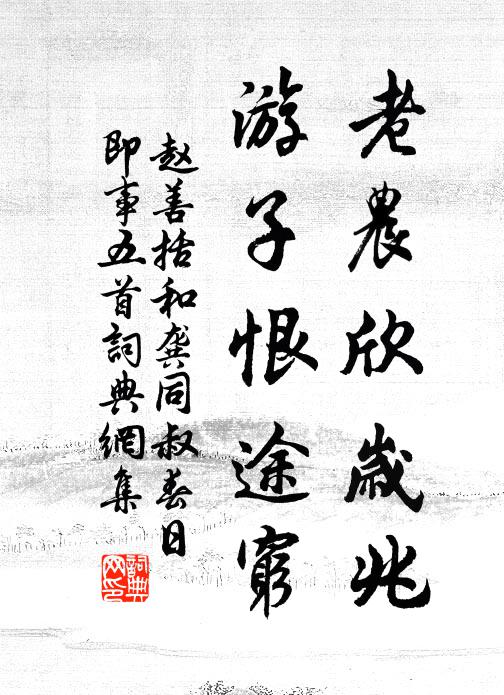 老農欣歲兆
游子恨途窮
赵善括和龚同叔春日
即事五首詞典網集
詞典網印